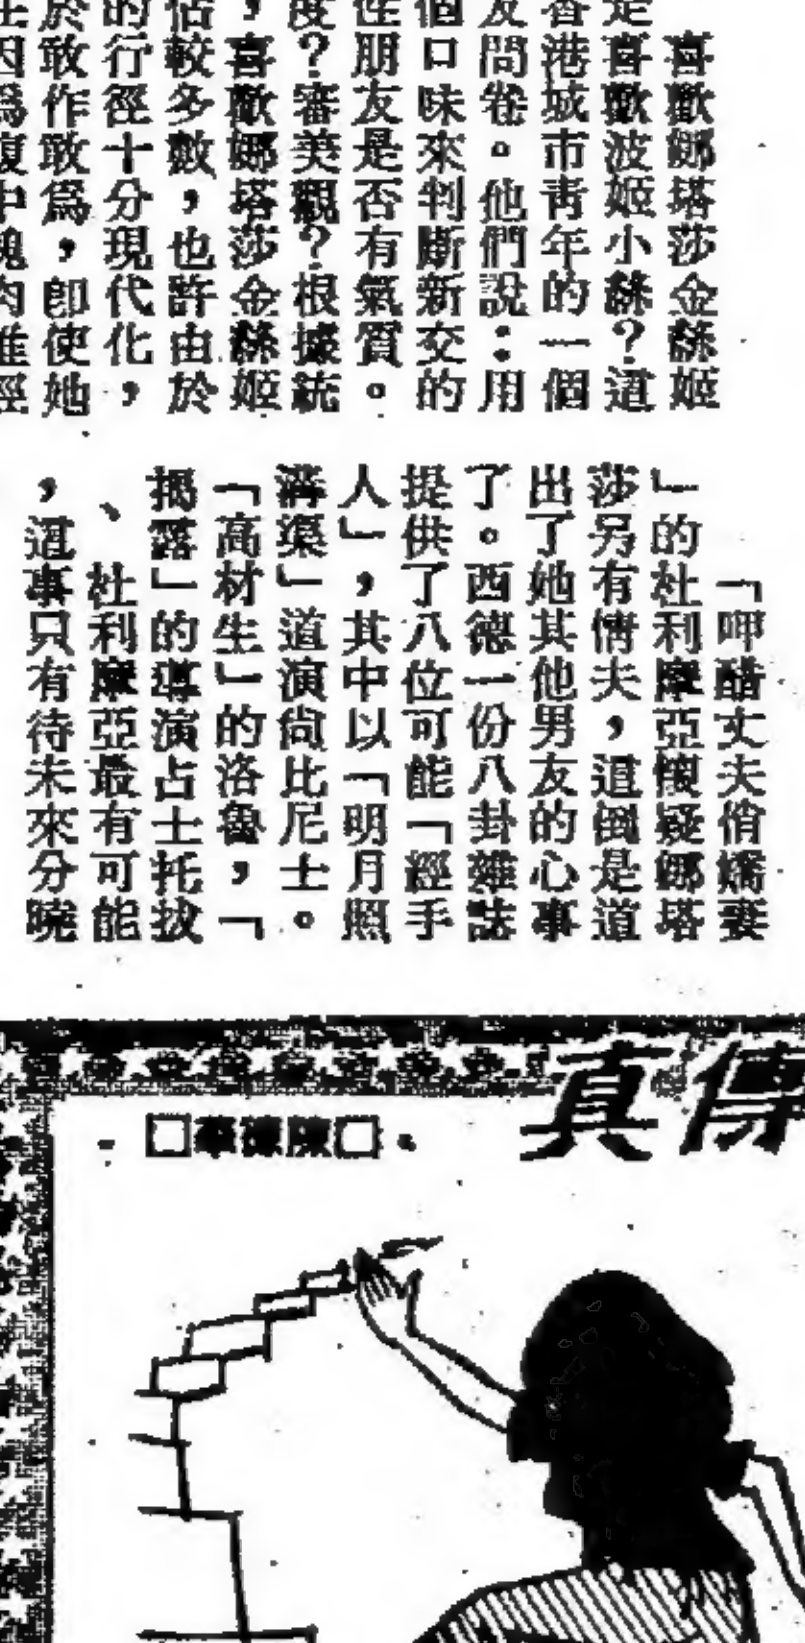 喜歡娜塔莎金絲姬
是喜歡波姬小絲？這
香港城市青年的一個
友問卷。他們說：用
個口味來判斷新交的
性朋友是否有氣質。
度？審美觀？根據統
，喜歡娜塔莎金絲姬
佔較多數，也許由於
的行徑十分現代化，
於敢作敢爲，即使她
因爲腹中塊肉誰經
「呷醋丈夫俏嬌妻
」的杜利摩亞懷疑娜塔
莎另有情夫，這倒是道
出了她其他男友的心事
了。西德一份八卦雜誌
提供了八位可能「經手
人」，其中以「明月照
溝渠」道演尙比尼士。
「高材生」的洛魯，「
揭露」的導演占士托拔
、杜利摩亞最有可能
，這事只有待未來分曉
傳真
□陳瑋華□